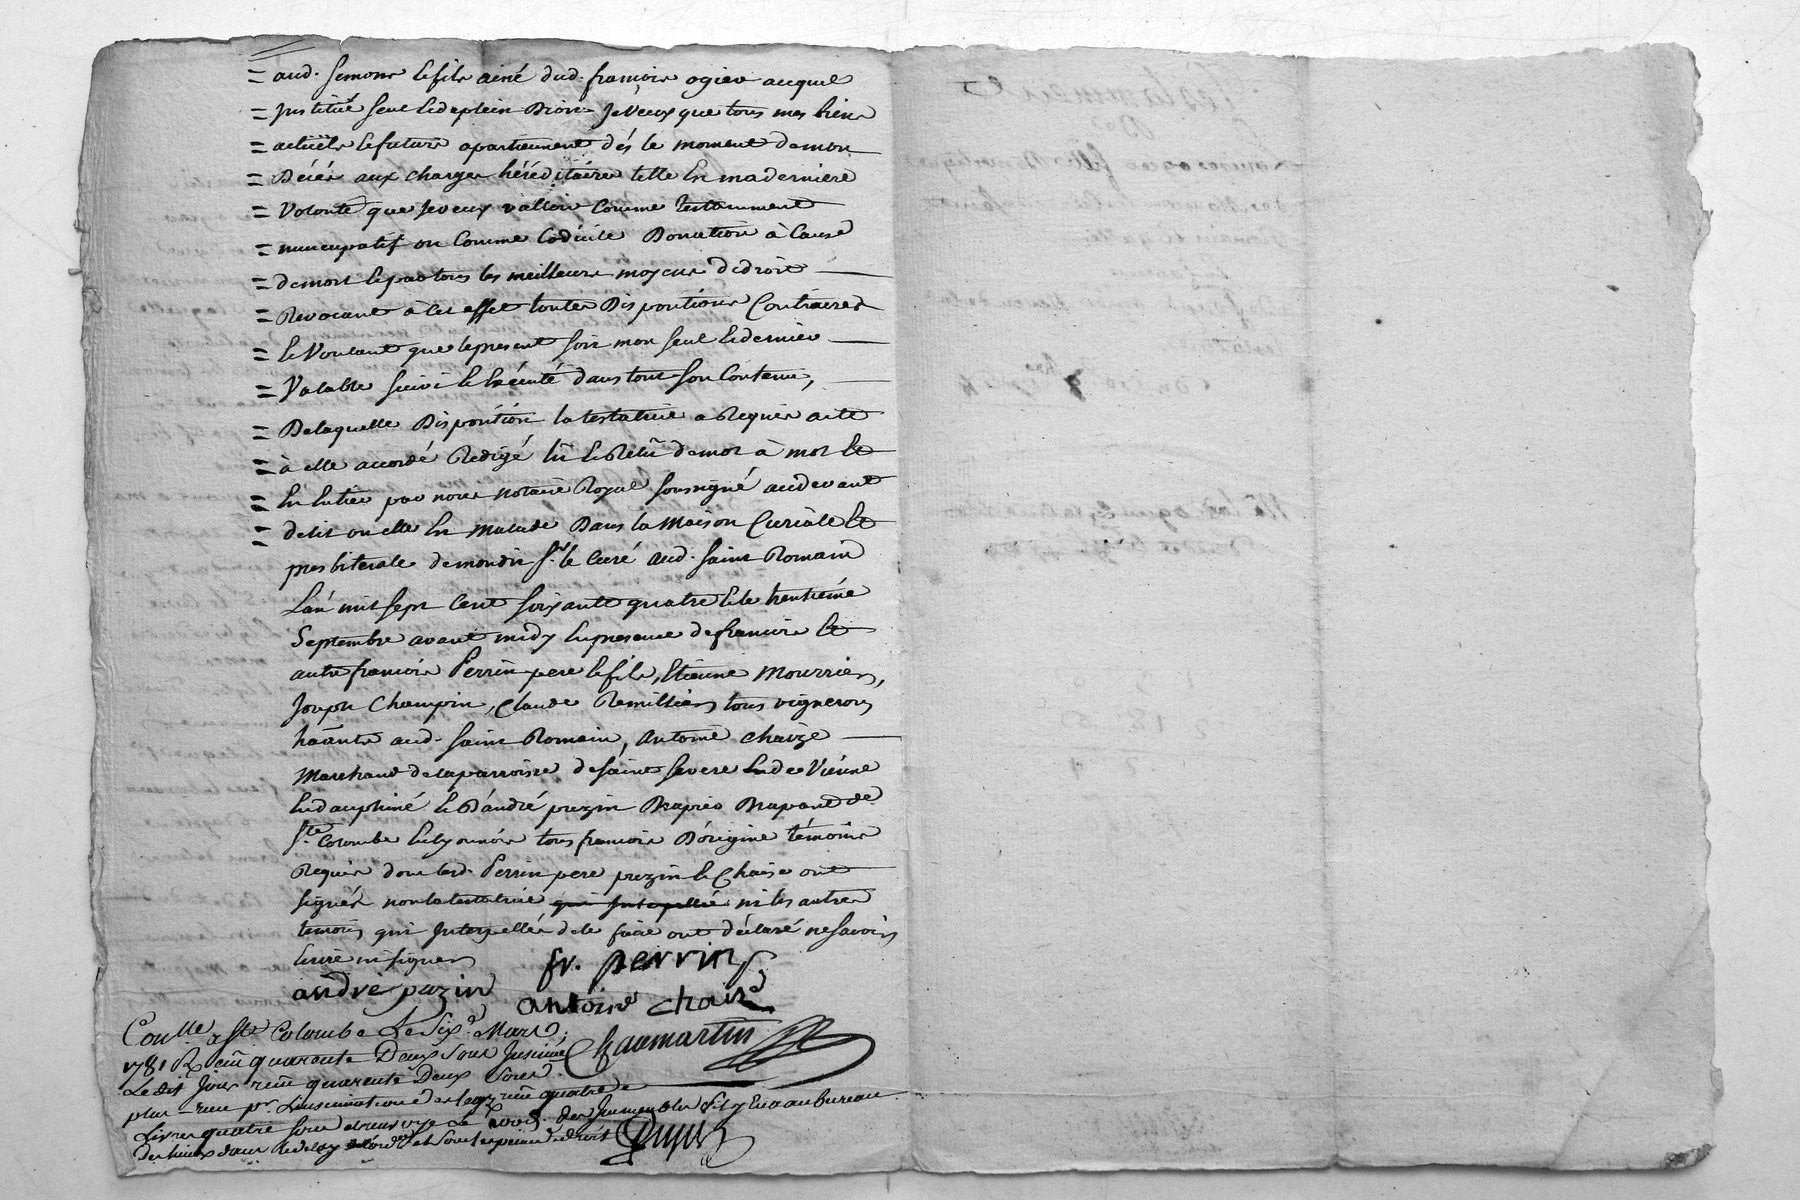 = aud. Simons le fils ainé dud. francois ogier auquel
= Jnstitué seul Et de plein Droit Je Veux que tous mes biens
= actüels Et futurs apartiennent dés le moment de mon
= Décés aux charges héréditaires telle En ma derniere
= Volonté que Je veux valloir Comme testamment
= nuncupatif ou Comme Codicile Donation à Cause
= de mort Et par tous les meilleurs moyens de droit
= Revocant à Cet effet toutes Dispositions Contraires
= Et Voulant que le present soit mon seul Et dernier
= Valable suivi Et Exécuté dans tout son Contenu,
= De laquelle Disposition la testatrice a Requis acte
= à elle accordé Redigé lû Et Relû de mot à mot Et
= En Entier par nous notaire Royal soussigné au devant
= de lit ou elle En malade Dans la Maison Curiale Et
presbiterale de mondit Sr. le Curé aud. saint Romain
L'an mil sept Cent soixante quatre Et le trentième
Septembre avant midy En presence de francois Et
autre francois Perrin pere Et fils, Etienne Mourrier,
Joseph Champin, Claude Remillier tous vignerons
häants aud. saint Romain, Antoine Chaize
Marchand de la parroisse de saint severe de Viénne
En dauphiné Et D'andré puzin de
Ste. Colombe En lyonnois tous francois D'origine témoins
Requis dont led. Perrin pere puzin Et Chaise ont
signés non la testatrice qui Jnterpellée ni les autres
temoins qui Jnterpellés de le faire ont déclaré ne savoir
Ecrire ni signer
fr. perrin
andre puzin
antoine chaize
Chaumartin
Conlle. a Ste Colombe Le Six Mars
1781 Reçu quarante Deux Sous Jnsinué
Le dit Jour reçu quarante Deux Sous
plus reçu pr. L'insinuation des legs quatre
Livres quatre sous des Jmmeubles s'il y En a au bureau
Des lieux dans le delay
Dupuis